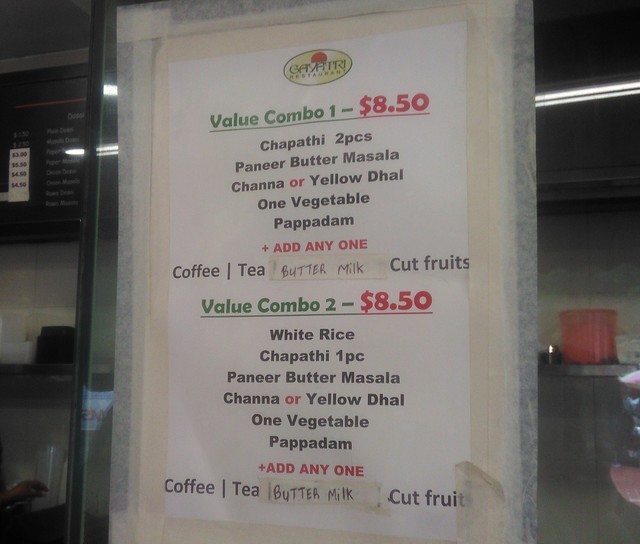 GAYATRI
RESTAURANT
Value Combo 1 – $8.50
Chapathi 2pcs
Paneer Butter Masala
Channa or Yellow Dhal
One Vegetable
Pappadam
+ ADD ANY ONE
Coffee | Tea | BUTTER Milk Cut fruits
Value Combo 2 – $8.50
White Rice
Chapathi 1pc
Paneer Butter Masala
Channa or Yellow Dhal
One Vegetable
Pappadam
+ADD ANY ONE
Coffee | Tea | BUTTER Milk Cut fruit